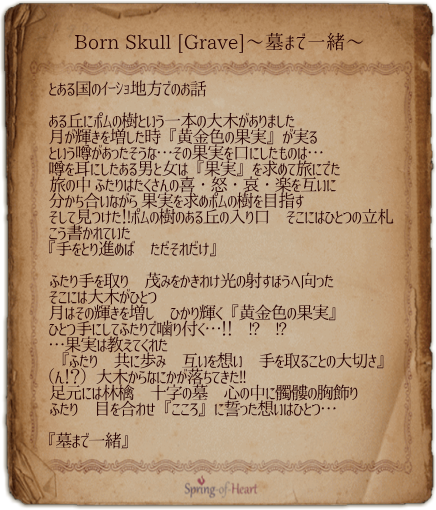 Born Skull [Grave]～墓まで一緒～
とある国のイーショ地方でのお話
ある丘にポムの樹という一本の大木がありました
月が輝きを増した時『黄金色の果実』が実る
という噂があったそうな…その果実を口にしたものは…
噂を耳にしたある男と女は『果実』を求めて旅にでた
旅の中 ふたりはたくさんの喜・怒・哀・楽を互いに
分かち合いながら 果実を求めポムの樹を目指す
そして見つけた!!ポムの樹のある丘の入り口 そこにはひとつの立札
こう書かれていた
『手をとり進めば ただそれだけ』
ふたり手を取り 茂みをかきわけ光の射すほうへ向った
そこには大木がひとつ
月はその輝きを増し ひかり輝く『黄金色の果実』
ひとつ手にしてふたりで噛り付く…!! !? !?
…果実は教えてくれた
『ふたり 共に歩み 互いを想い 手を取ることの大切さ』
(ん!?) 大木からなにかが落ちてきた!!
足元には林檎 十字の墓 心の中に髑髏の胸飾り
ふたり 目を合わせ『こころ』に誓った想いはひとつ…
『墓まで一緒』
Spring-of-Heart